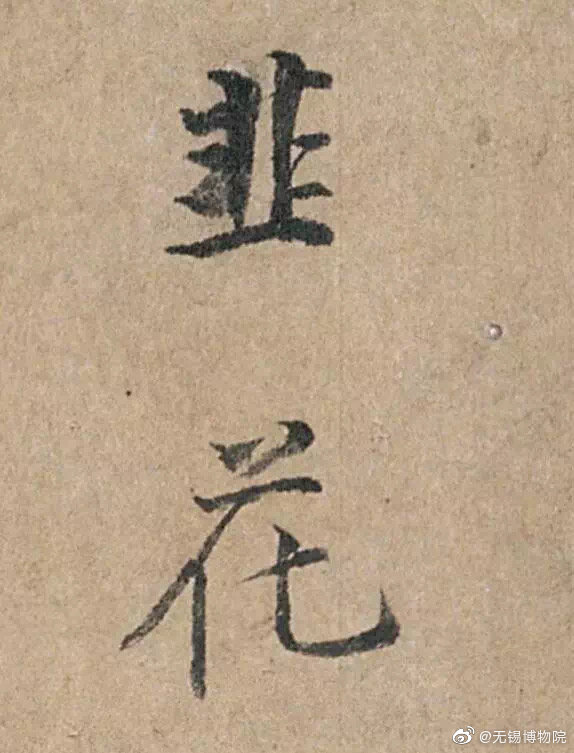 韭
花
@无锡博物院